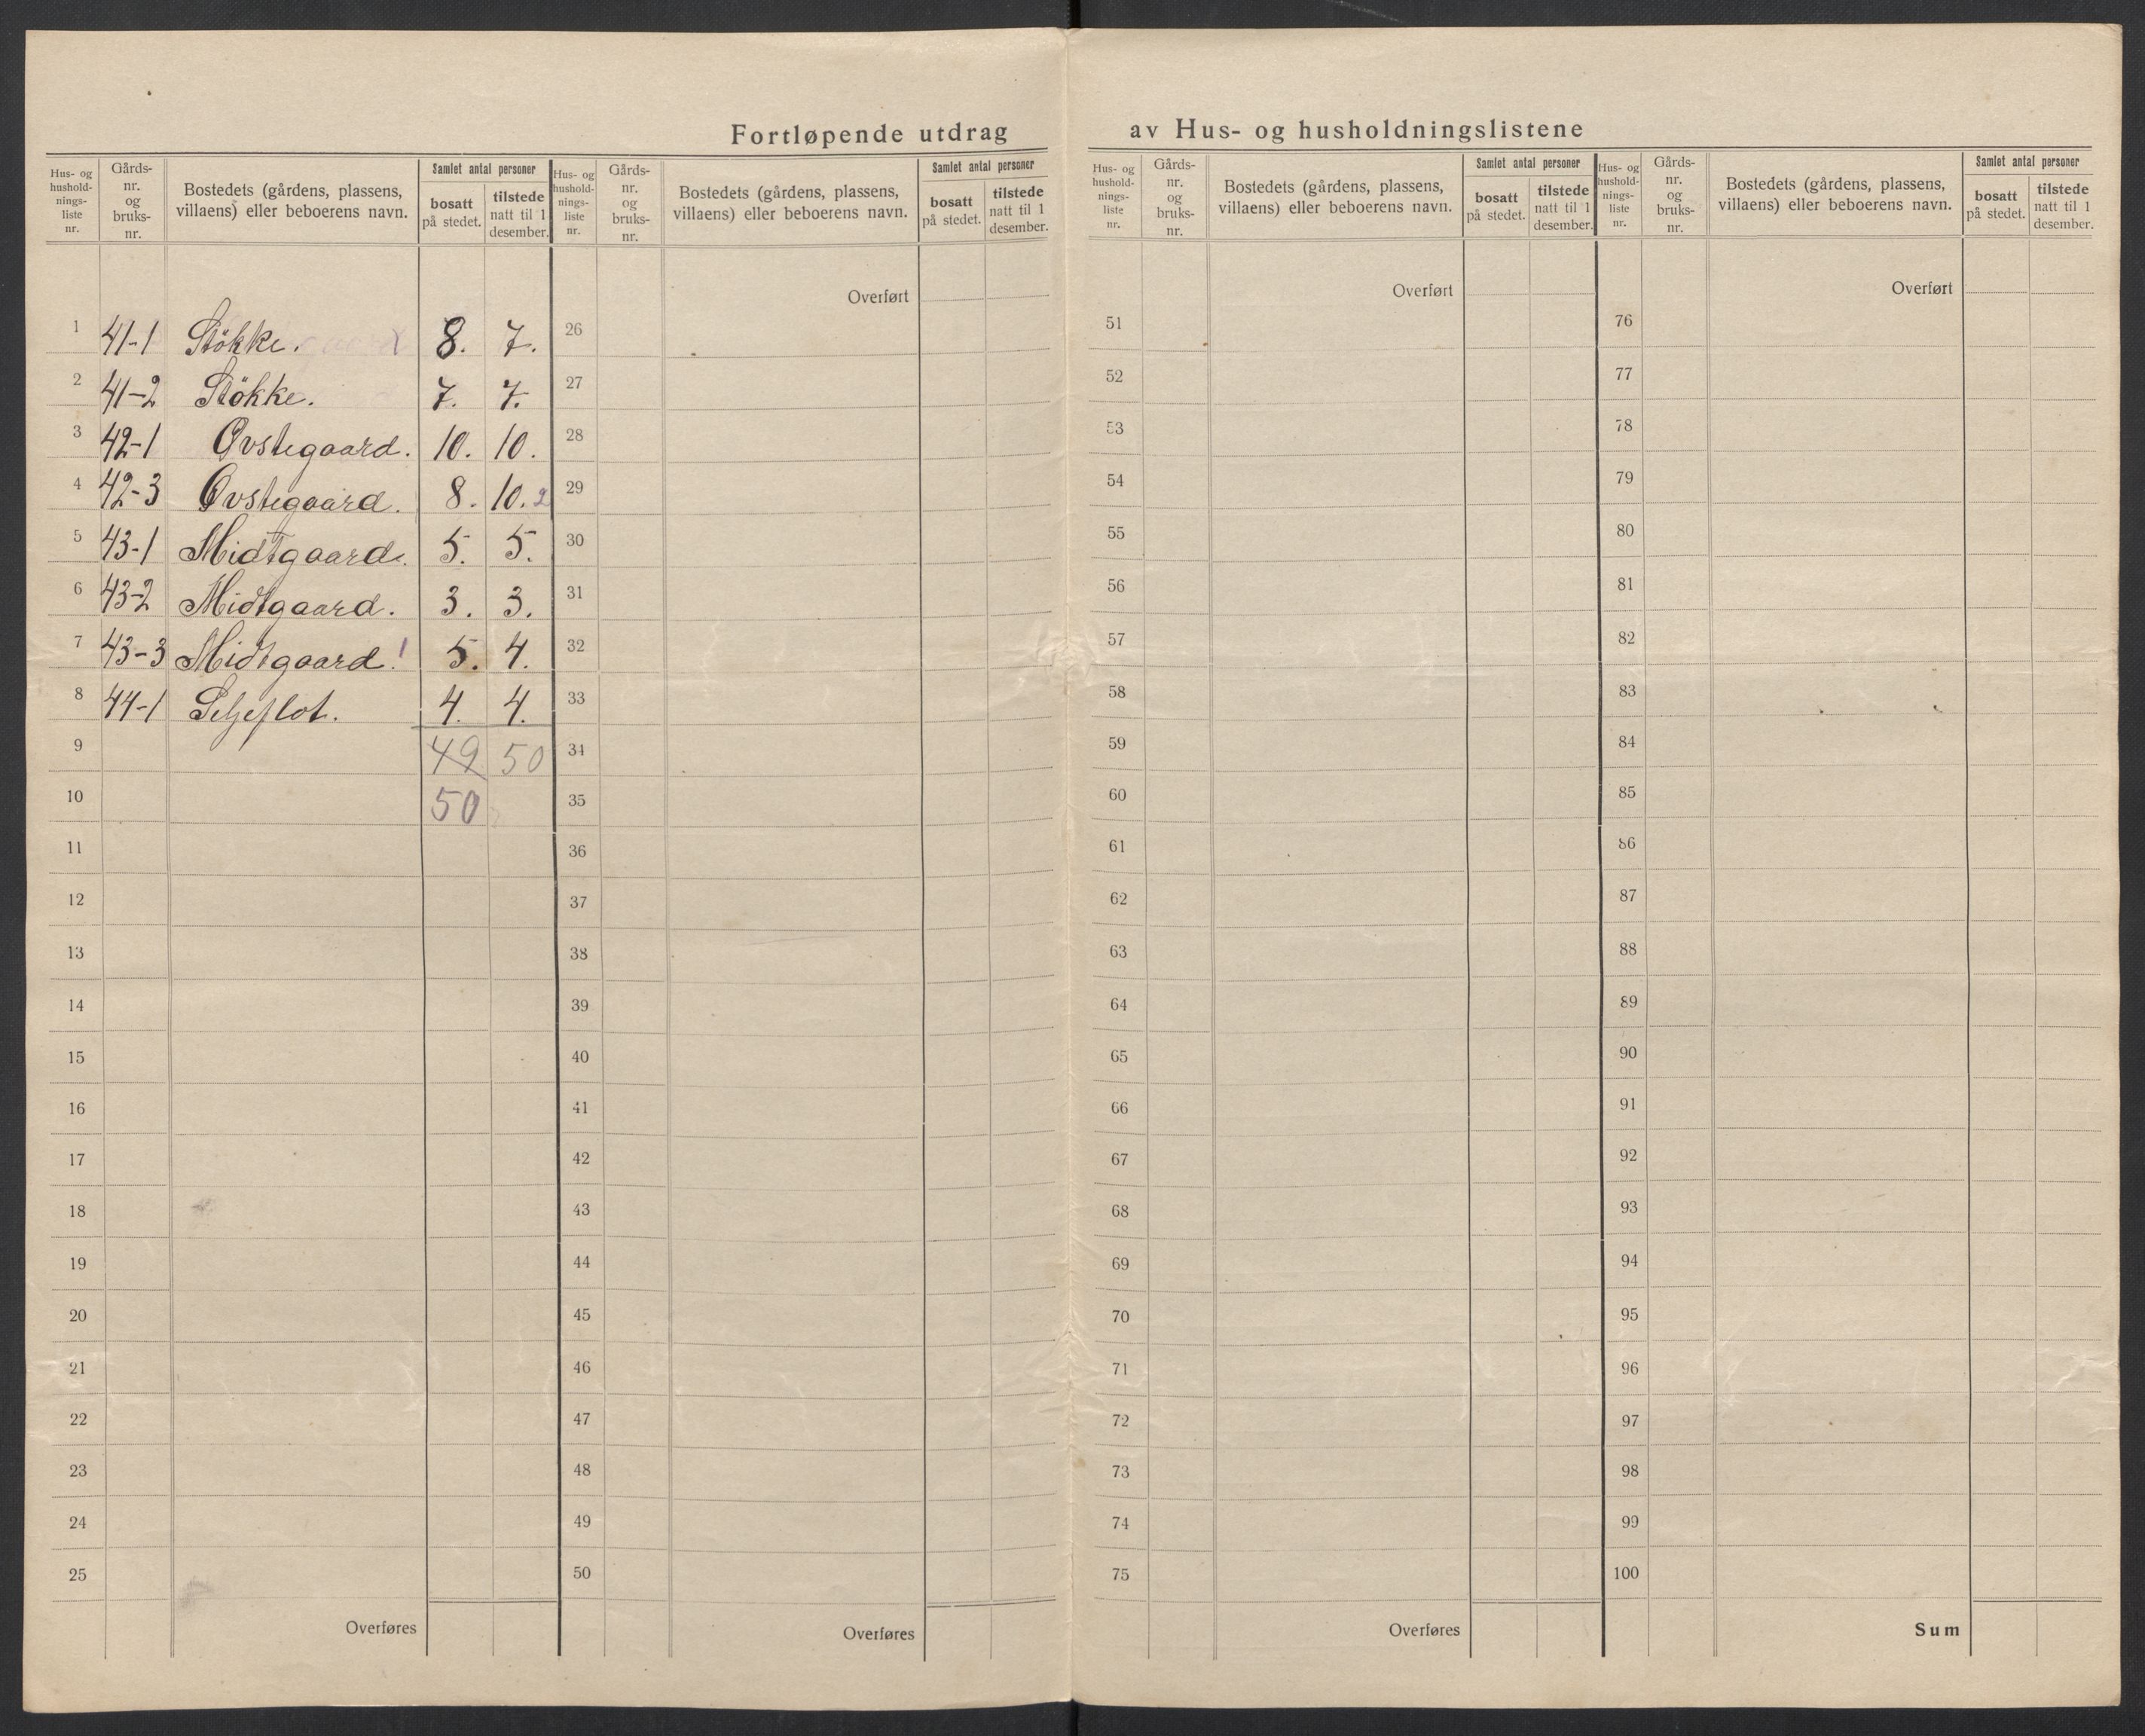 Fortløpende utdrag av Hus- og husholdningslistene
Hus- og hushold-nings-liste nr.
Gårds-nr. og bruks-nr.
Bostedets (gårdens, plassens, villaens) eller beboerens navn.
Samlet antal personer
bosatt på stedet.
tilstede natt til 1 desember.
Hus- og hushold-nings-liste nr.
Gårds-nr. og bruks-nr.
Bostedets (gårdens, plassens, villaens) eller beboerens navn.
Samlet antal personer
bosatt på stedet.
tilstede natt til 1 desember.
Hus- og hushold-nings-liste nr.
Gårds-nr. og bruks-nr.
Bostedets (gårdens, plassens, villaens) eller beboerens navn.
Samlet antal personer
bosatt på stedet.
tilstede natt til 1 desember.
Hus- og hushold-nings-liste nr.
Gårds-nr. og bruks-nr.
Bostedets (gårdens, plassens, villaens) eller beboerens navn.
Samlet antal personer
bosatt på stedet.
tilstede natt til 1 desember.
Overført Overført Overført
1 41-1 Stökke. 8. 7. 26 51 76
2 41-2 Stökke. 7. 7. 27 52 77
3 42-1 Øvstegaard. 10. 10. 28 53 78
4 42-3 Øvstegaard. 8. 10. 2 29 54 79
5 43-1 Midtgaard. 5. 5. 30 55 80
6 43-2 Midtgaard. 3. 3. 31 56 81
7 43-3 Midtgaard. 5. 4. 32 57 82
8 44-1 Seljeflot. 4. 4. 33 58 83
9 49 50 34 59 84
10 50 35 60 85
11 36 61 86
12 37 62 87
13 38 63 88
14 39 64 89
15 40 65 90
16 41 66 91
17 42 67 92
18 43 68 93
19 44 69 94
20 45 70 95
21 46 71 96
22 47 72 97
23 48 73 98
24 49 74 99
25 50 75 100
Overføres Overføres Overføres Sum